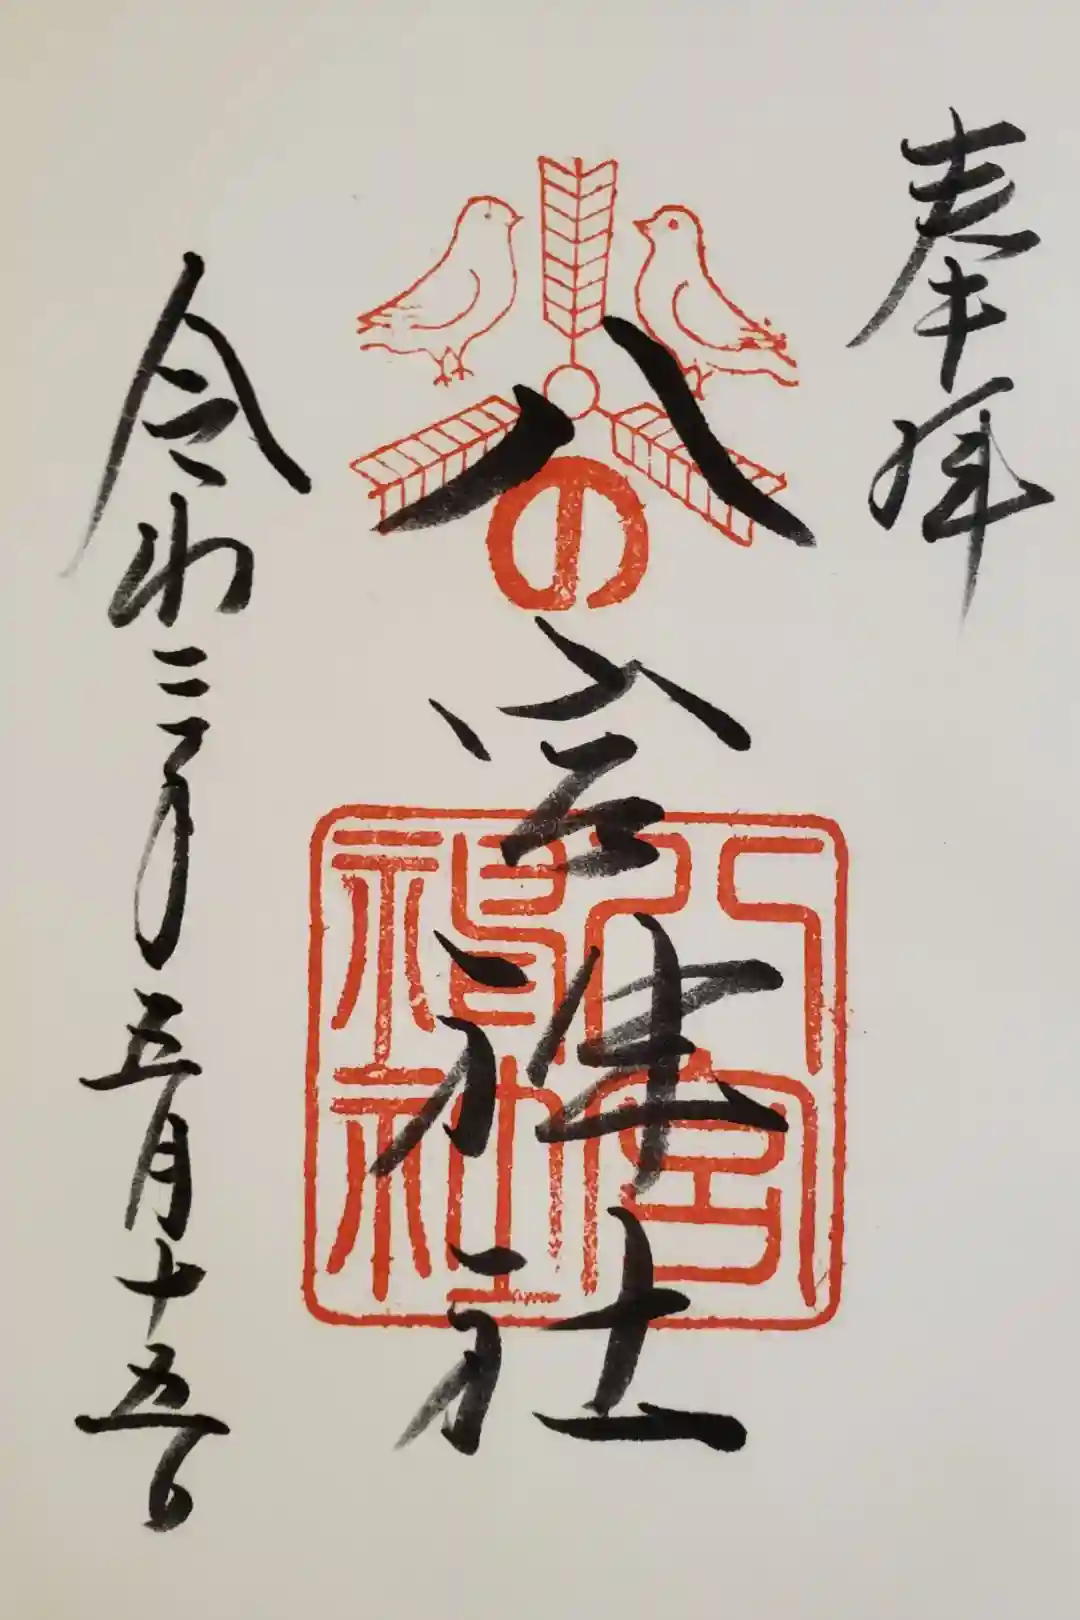 奉拝
八の宮神社
八宮神社
令和三年五月十五日